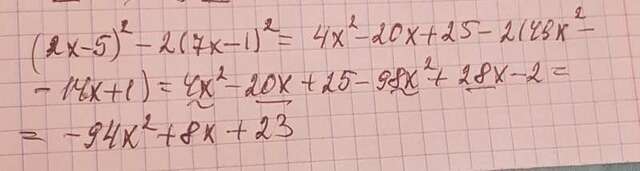 (2x-5)² - 2(7x-1)² = 4x² - 20x + 25 - 2(49x² -
- 14x + 1) = 4x² - 20x + 25 - 98x² + 28x - 2 =
= -94x² + 8x + 23